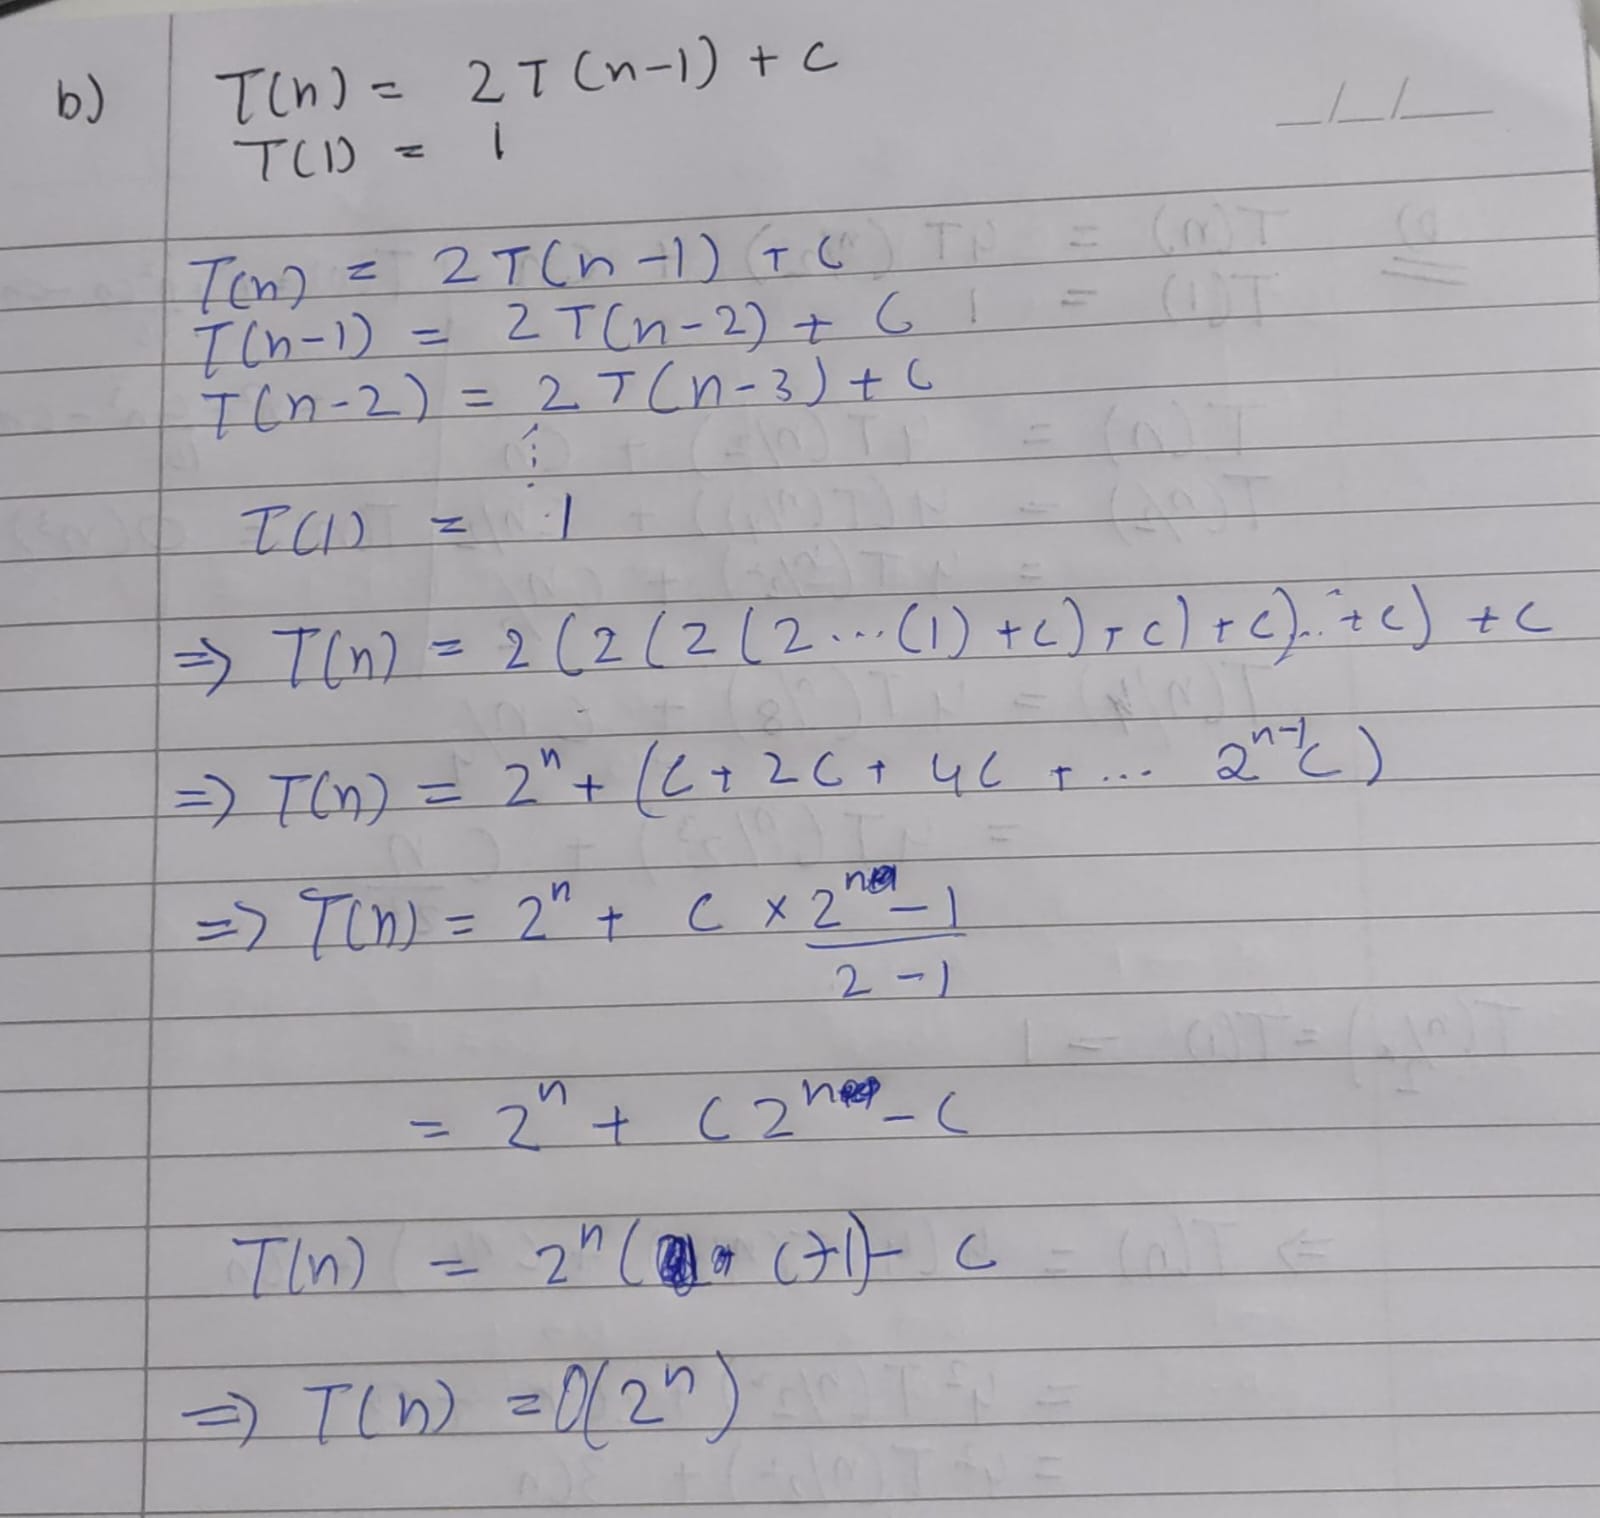 b) T(n) = 2T(n-1) + c
T(1) = 1
__/__/__
T(n) = 2T(n-1) + c
T(n-1) = 2T(n-2) + c
T(n-2) = 2T(n-3) + c
⋮
T(1) = 1
⇒ T(n) = 2(2(2(2...(1)+c)+c)+c)..+c)+c
⇒ T(n) = 2ⁿ + (c + 2c + 4c + ... 2ⁿ⁻¹c)
⇒ T(n) = 2ⁿ + c × 2ⁿ - 1
2 - 1
= 2ⁿ + c2ⁿ - c
T(n) = 2ⁿ(c+1) - c
⇒ T(n) = O(2ⁿ)